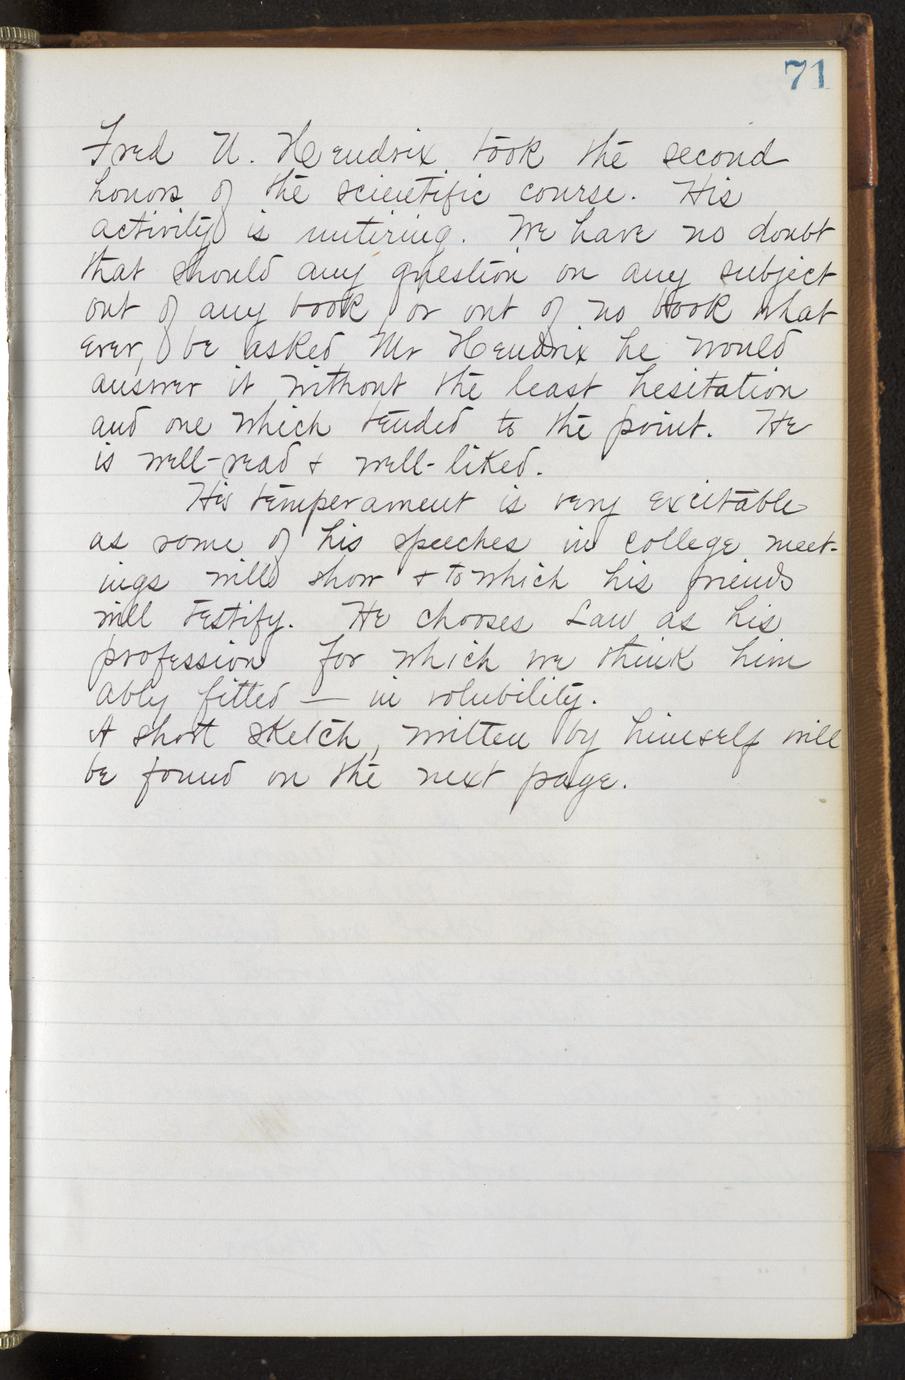 71
Fred N. Hendrix took the second
honors of the scientific course. His
activity is untiring. We have no doubt
that should any question on any subject
out of any book, or out of no book what
ever, be asked Mr Hendrix he would
answer it without the least hesitation
and one which tended to the point. He
is well-read & well-liked.
His temperament is very excitable
as some of his speeches in college meet-
ings will show & to which his friends
will testify. He chooses Law as his
profession for which we think him
ably fitted — in volubility.
A short sketch, written by himself will
be found on the next page.